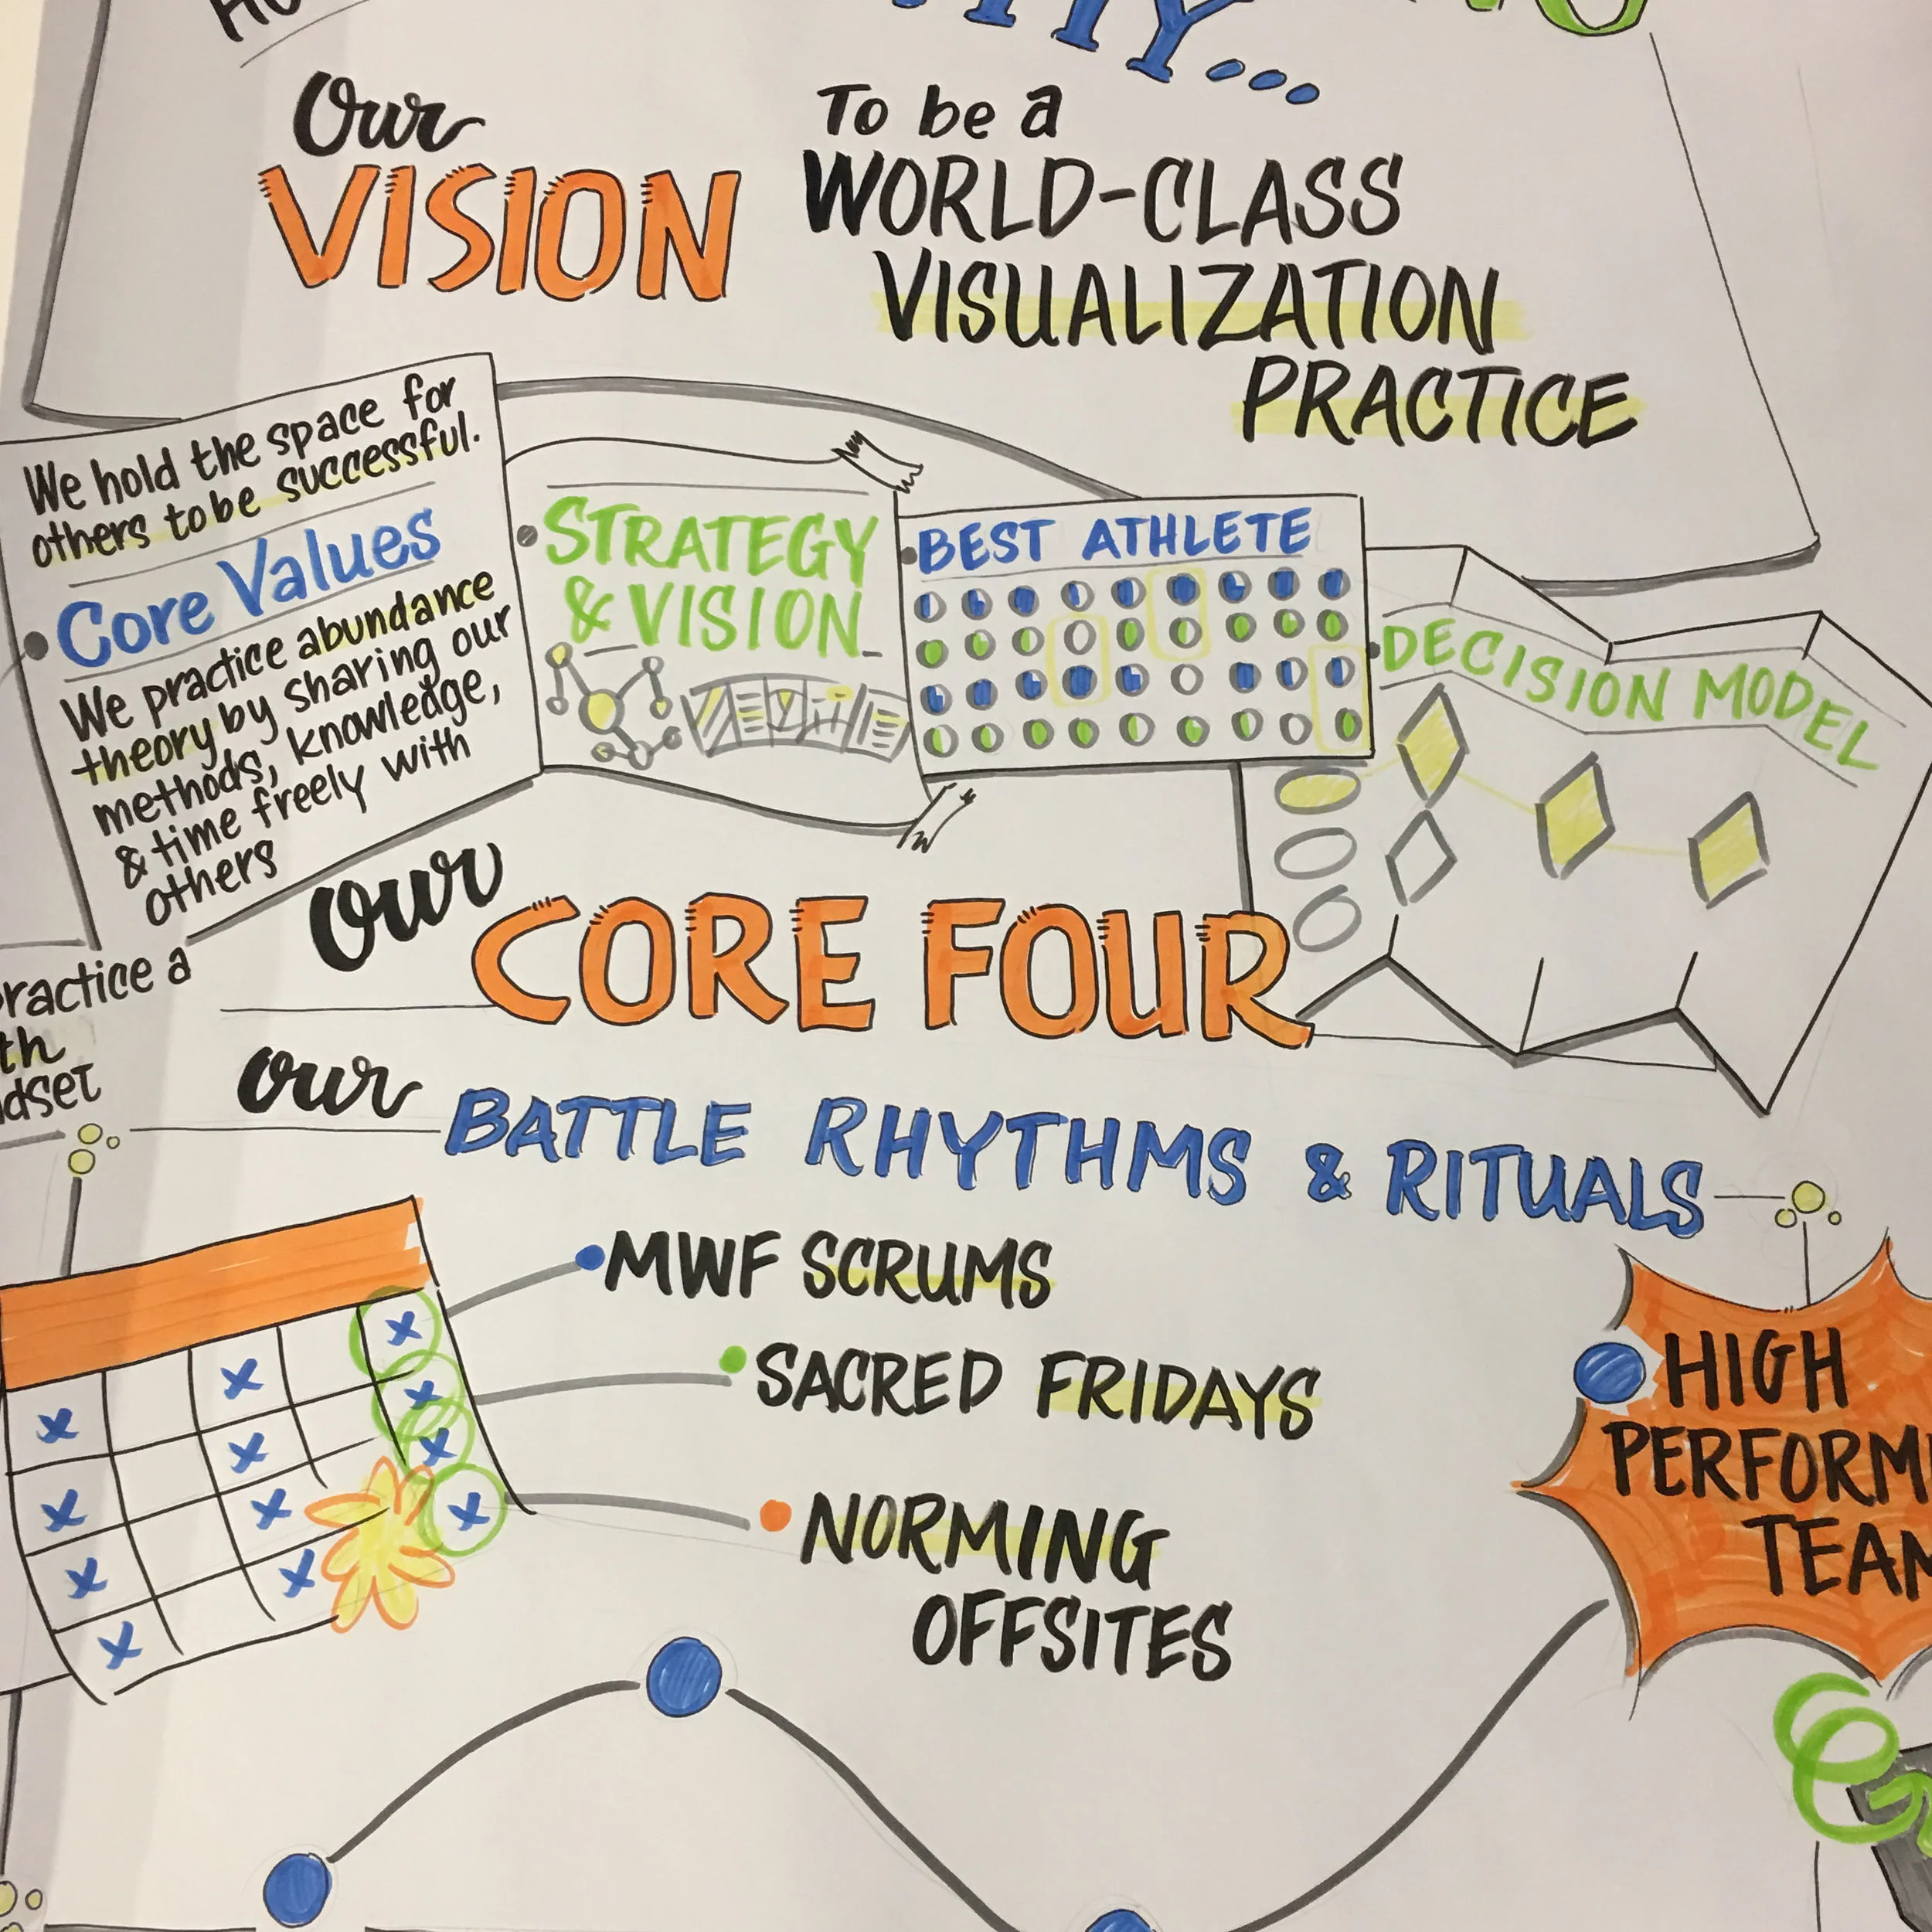 Our
VISION
To be a
WORLD-CLASS
VISUALIZATION
PRACTICE
We hold the space for
others to be successful.
Core Values
We practice abundance
theory by sharing our
methods, knowledge,
& time freely with
others
STRATEGY
& VISION
BEST ATHLETE
DECISION MODEL
our
CORE FOUR
practice a
our
BATTLE RHYTHMS & RITUALS
• MWF SCRUMS
• SACRED FRIDAYS
• NORMING
OFFSITES
HIGH
PERFORMI
TEAM